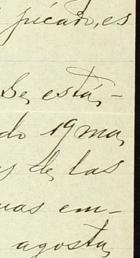 picado, es
Se, está,-
do 19 ma,
es de las
uas em-
agosta,